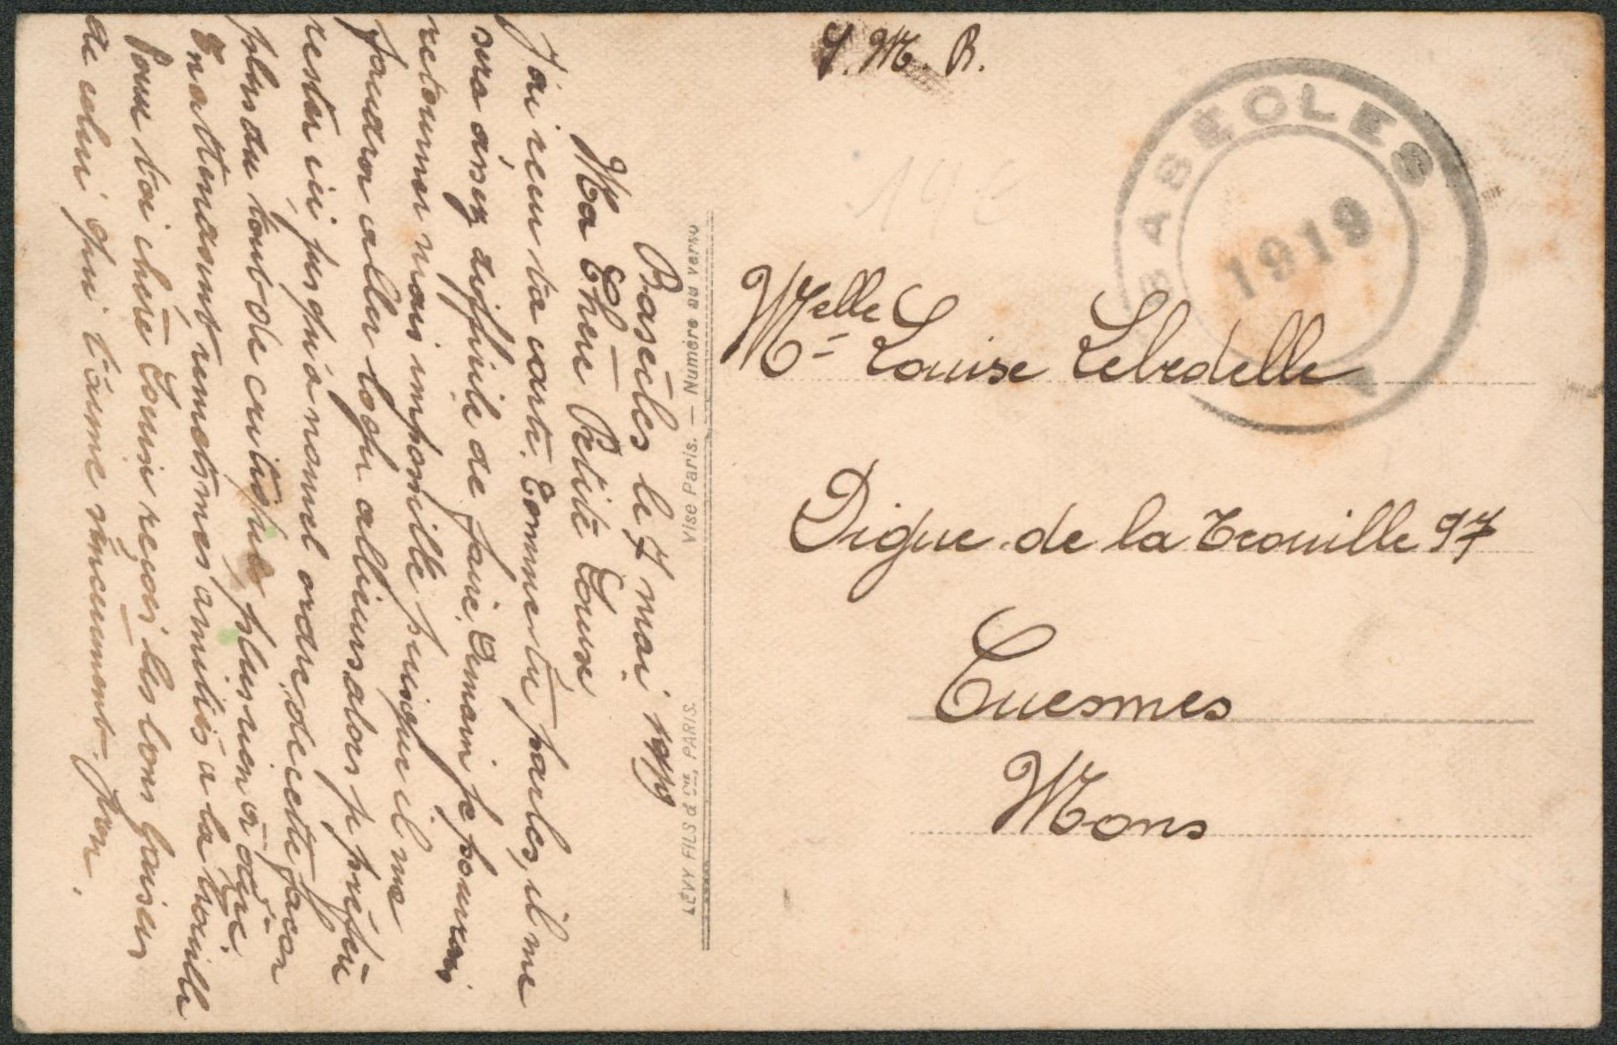 S. M. B.
BASECLES
1919
14 €
Melle Louise Lebrdelle
Digue de la Trouille 97
Cuesmes
Mons
Visé Paris. — Numéro au verso
LEVY FILS & Cie, PARIS.
Basècles le 7 mai 1919
Ma Chère Petite Louise
J'ai reçu ta carte. Comme tu parles, il me
sera assez difficile de faire. Demain je pourrai
retourner mais impossible puisque il me
faudra aller loger ailleurs alors je préfère
rester ici jusqu'a nouvel ordre, de cette facon
plus du tout de critique plus rien a dire.
En attendant remet mes amitiés a la famille
Pour toi chère Louise reçois les bons baisers
de celui qui t'aime sincerement. Jean.